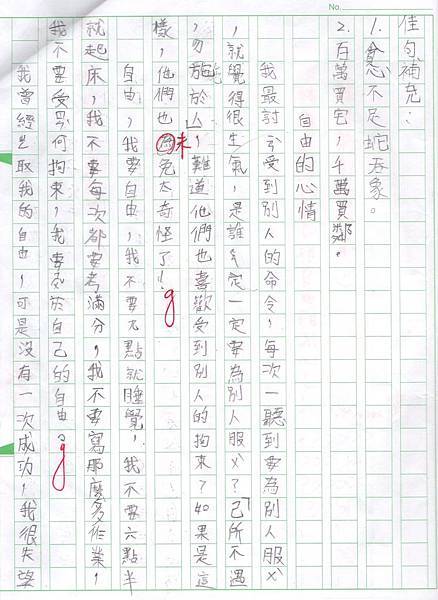 No.
佳句補充：
1.貪心不足蛇吞象。
2.百萬買宅，千萬買鄰。
自由的心情
我最討ㄧㄢˋ受到別人的命令，每次一聽到要為別人服ㄨˋ
，就覺得很生氣，是誰定一定要為別人服ㄨˋ？己所不遇
，勿施於人，難道他們也喜歡受到別人的拘束？如果是這
樣，他們也為未免太奇怪了！
自由，我要自由，我不要九點就睡覺，我不要六點半
就起床，我不要每次都要考滿分，我不要寫那麼多作業，
我不要受任何拘束，我要忠於自己的自由。
我曾經爭取我的自由，可是沒有一次成功，我很失望